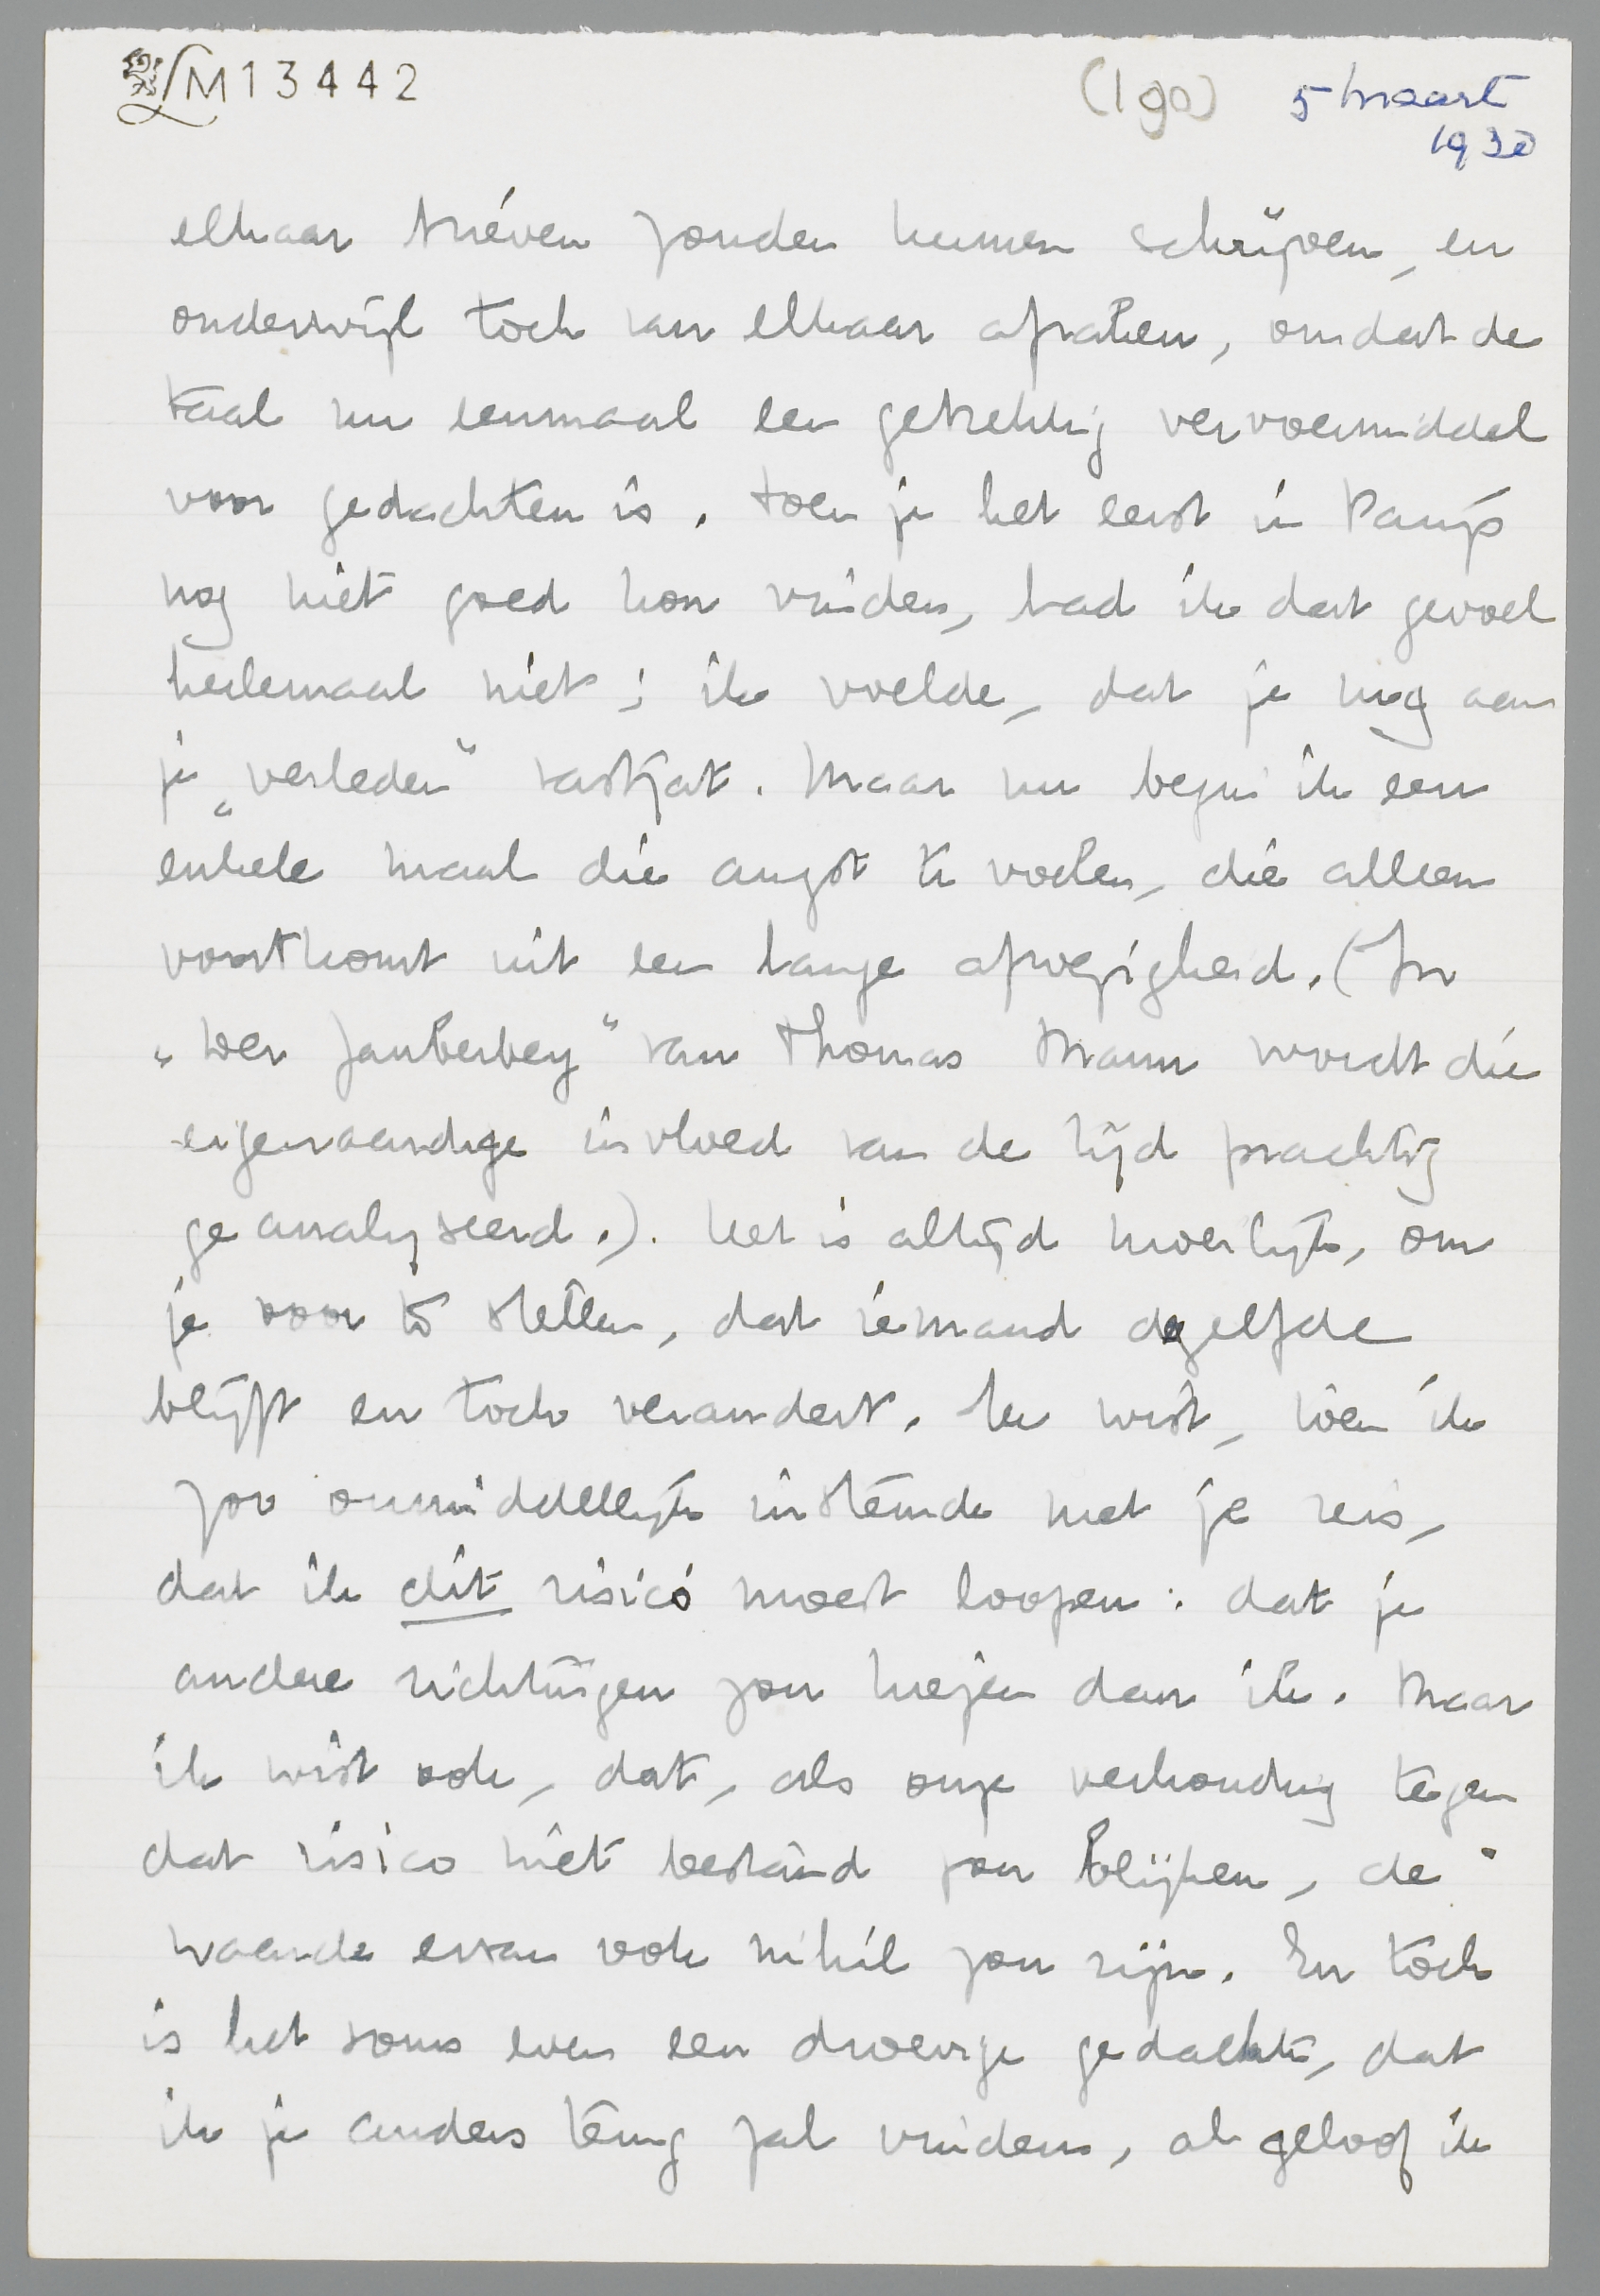 LM13442
(190) 5 Maart
1930
elkaar brieven zouden kunnen schrijven, en
onderwijl toch van elkaar afraken, omdat de
taal nu eenmaal een gebrekkig vervoermiddel
voor gedachten is. Toen je het eerst in Parijs
nog niet goed kon vinden, had ik dat gevoel
heelemaal niet; ik voelde, dat je nog aan
je „verleden” vastzat. Maar nu begin ik een
enkele maal die angst te voelen, die alleen
voortkomt uit een lange afwezigheid. (In
„Der Zauberberg” van Thomas Mann wordt die
eigenaardige invloed van de tijd prachtig
geanalyseerd.). Het is altijd moeilijk, om
je voor te stellen, dat iemand dezelfde
blijft en toch verandert. Ik wist, toen ik
zoo onmiddellijk instemde met je reis,
dat ik dit risico moest loopen: dat je
andere richtingen zou kiezen dan ik. Maar
ik wist ook, dat, als onze verhouding tegen
dat risico niet bestand zou blijken, de
waarde ervan ook nihil zou zijn. En toch
is het soms even een droevige gedachte, dat
ik je anders terug zal vinden, al geloof ik